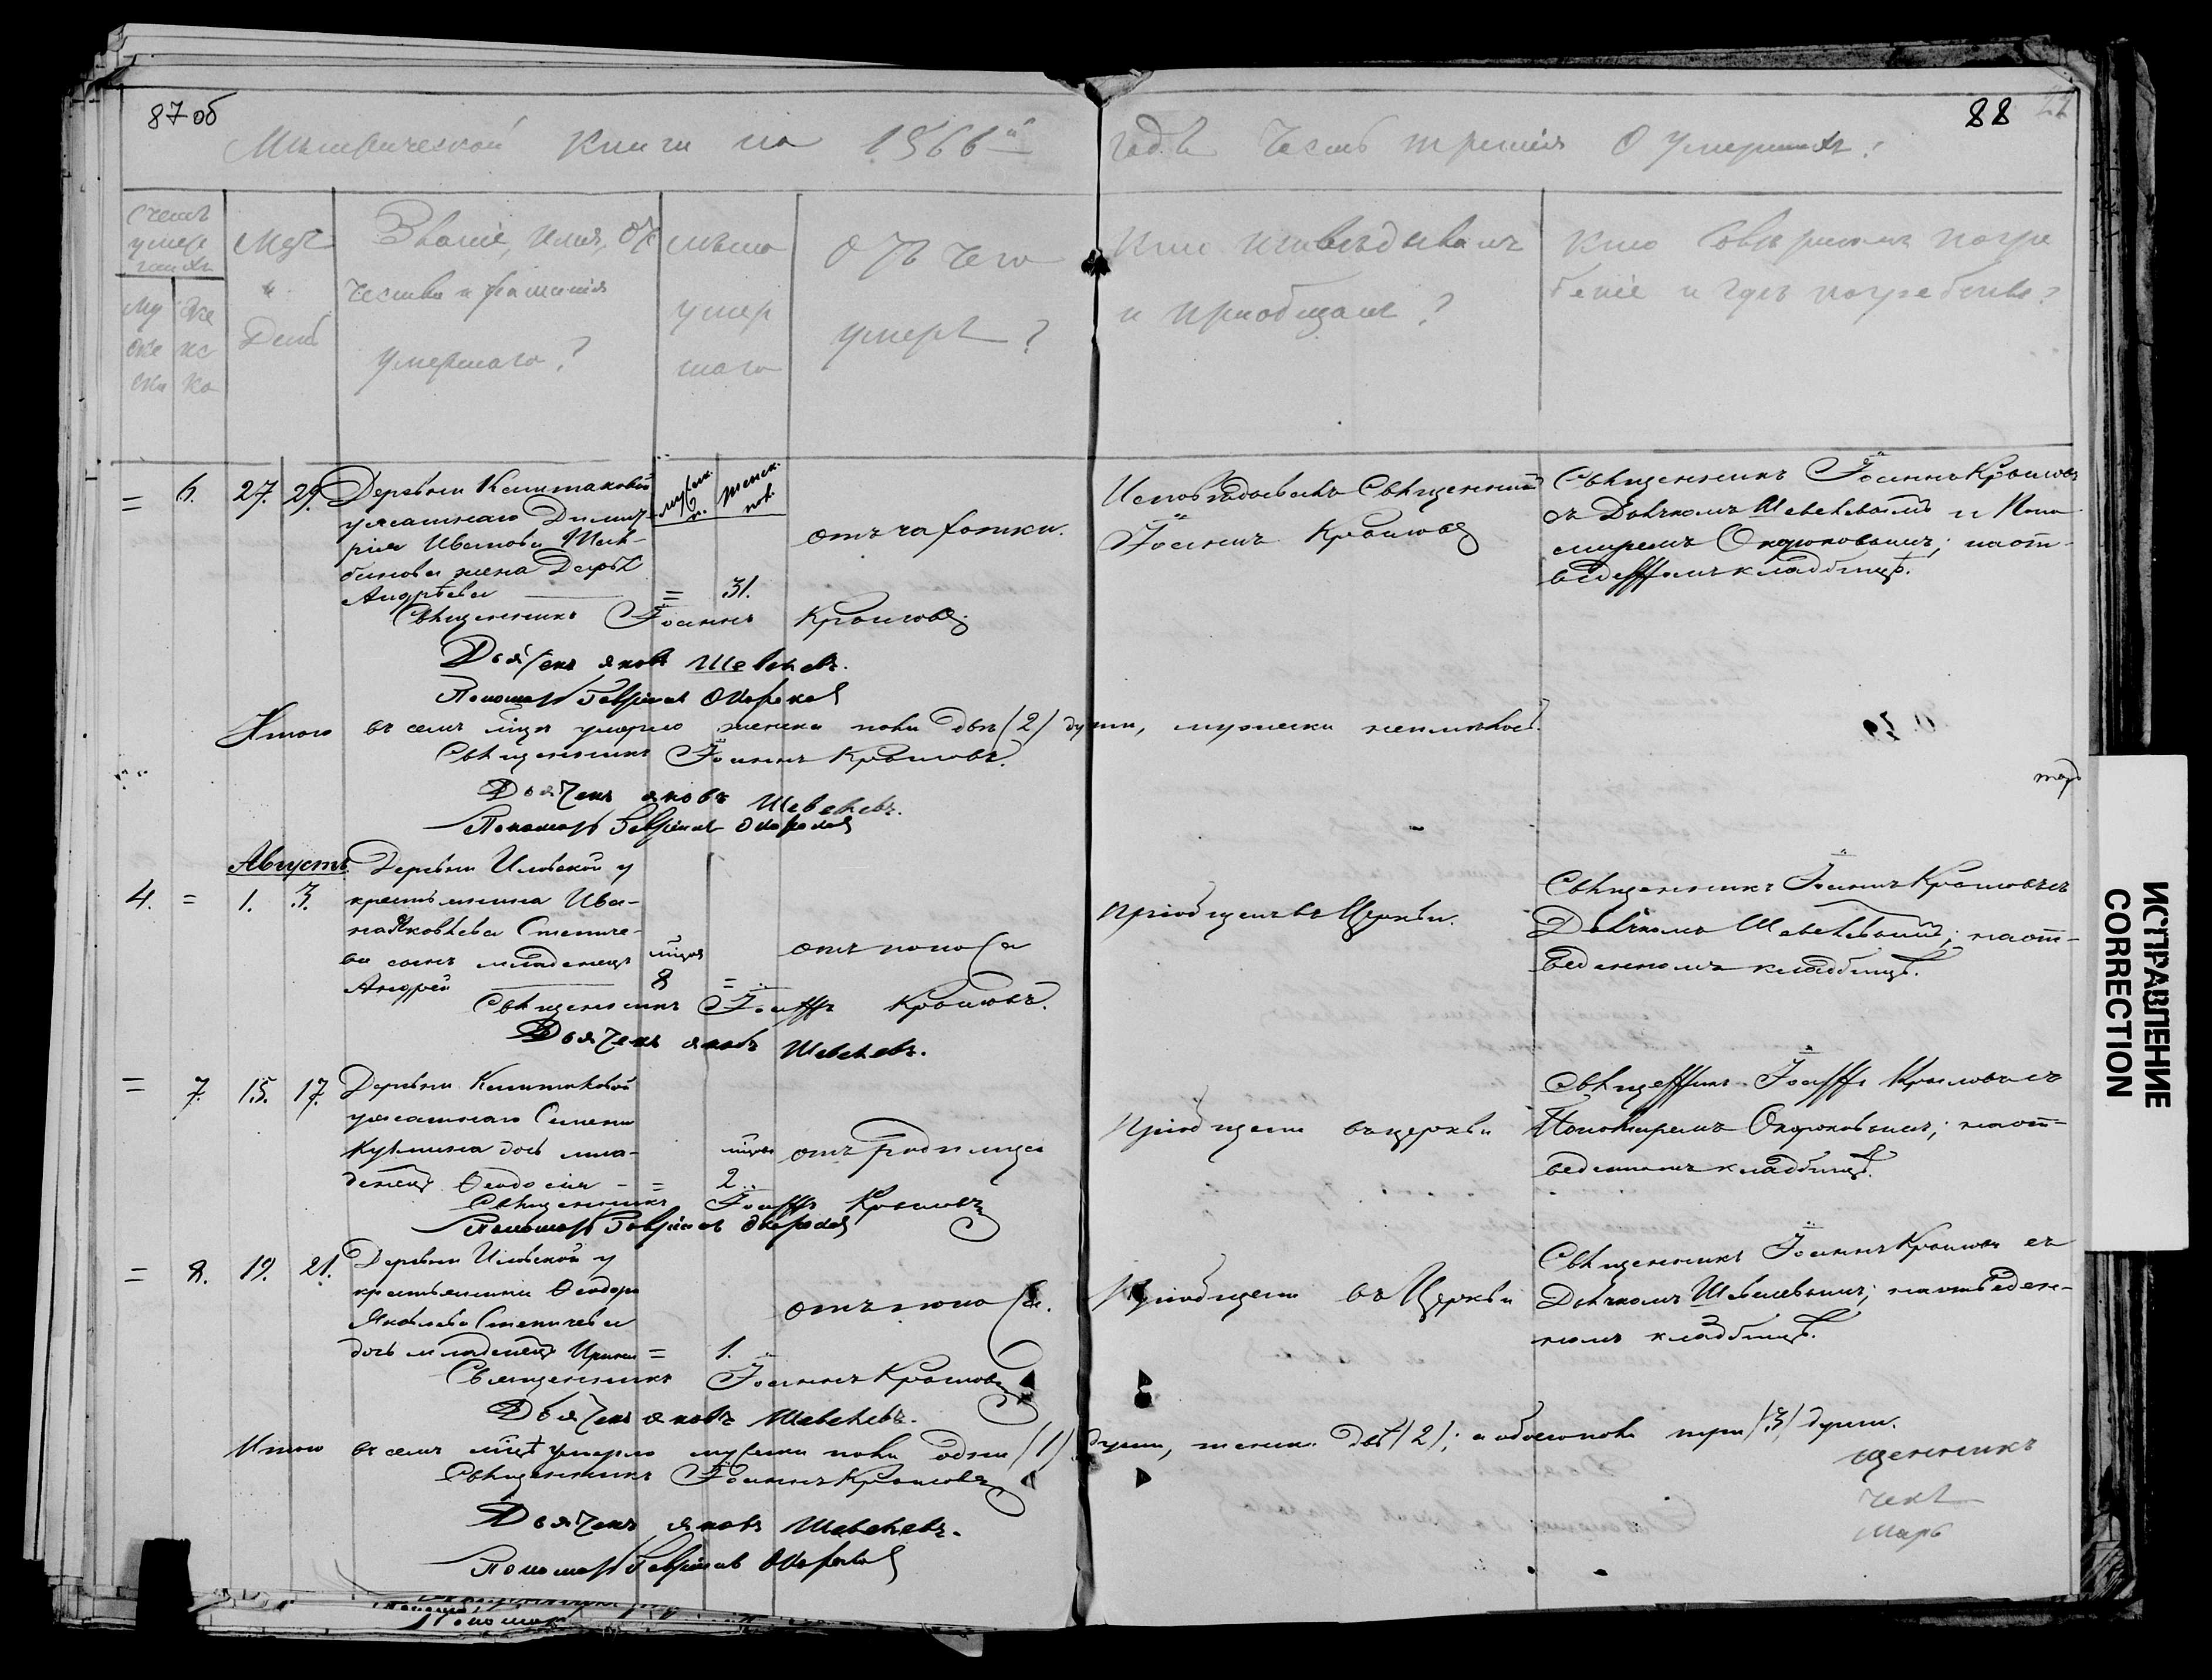 87 об
88
Метрической книги на 1866й годъ Часть третія О умершихъ?
Счетъ умер шихъ
Му жес ска
Же нс ка
Мѣс. и День
Званіе, имя, От
чество и фамилія
умершаго?
лѣта
умер
шаго
отъ чего
умеръ?
Кто исповѣдывалъ
и приобщалъ?
Кто Совершалъ погре
беніе и гдѣ погребены?
мужеск. п.
женск. пол.
= 6. 27. 29. Деревни
ужатнаго Димит-
рія Иванова
жена Дарья
Андрѣева = 31.
отъ чахотки.
Исповѣдывалъ Священникъ
Іоаннъ Крыловъ
Священникъ Іоаннъ Крыловъ
съ Дьячкомъ Шевелевымъ и Поно
маремъ на от-
веденномъ кладбищѣ.
Священникъ Іоаннъ Крыловъ
Дьячекъ Яковъ Шевелевъ.
Пономарь Гавріилъ
Итого въ семъ мцѣ умерло женска пола двѣ (2) души, мужеска неимѣлось.
Священникъ Іоаннъ Крыловъ.
Дьячекъ Яковъ Шевелевъ.
Пономарь Гавріилъ
марь
Августъ
4. = 1. 3. Деревни Иловской у
крестьянина Ива-
на Яковлева Степиче-
ва сынъ младенецъ
Андрей
мцовъ
8 =
отъ поноса
Пріобщенъ въ Церкви.
Священникъ Іоаннъ Крыловъ съ
Дьячкомъ Шевелевымъ; на от-
веденномъ кладбищѣ.
Священникъ Іоаннъ Крыловъ.
Дьячекъ Яковъ Шевелевъ.
= 7. 15. 17. Деревни
ужатнаго Семена
Кузмина дочь мла-
денецъ Ѳеодосія - =
мцовъ
2
отъ родимца
Пріобщена въ церкви
Священникъ Іоаннъ Крыловъ съ
Пономаремъ на от-
веденномъ кладбищѣ.
Священникъ Іоаннъ Крыловъ
Пономарь Гавріилъ
= 8. 19. 21. Деревни Иловской у
крестьянина Ѳеодора
Яковлева Степичева
дочь младенецъ Ирина = 1.
отъ поноса.
Пріобщена въ Церкви
Священникъ Іоаннъ Крыловъ съ
Дьячкомъ Шевелевымъ; на отведен-
номъ кладбищѣ.
Священникъ Іоаннъ Крыловъ
Дьячекъ Яковъ Шевелевъ.
Итого въ семъ мцѣ умерло мужска пола одна (1) душа, женска двѣ (2); а обоего пола три (3) души.
Священникъ Іоаннъ Крыловъ
Дьячекъ Яковъ Шевелевъ.
Пономарь Гавріилъ
щенникъ
чекъ
марь
Пономарь
ИСПРАВЛЕНИЕ
CORRECTION